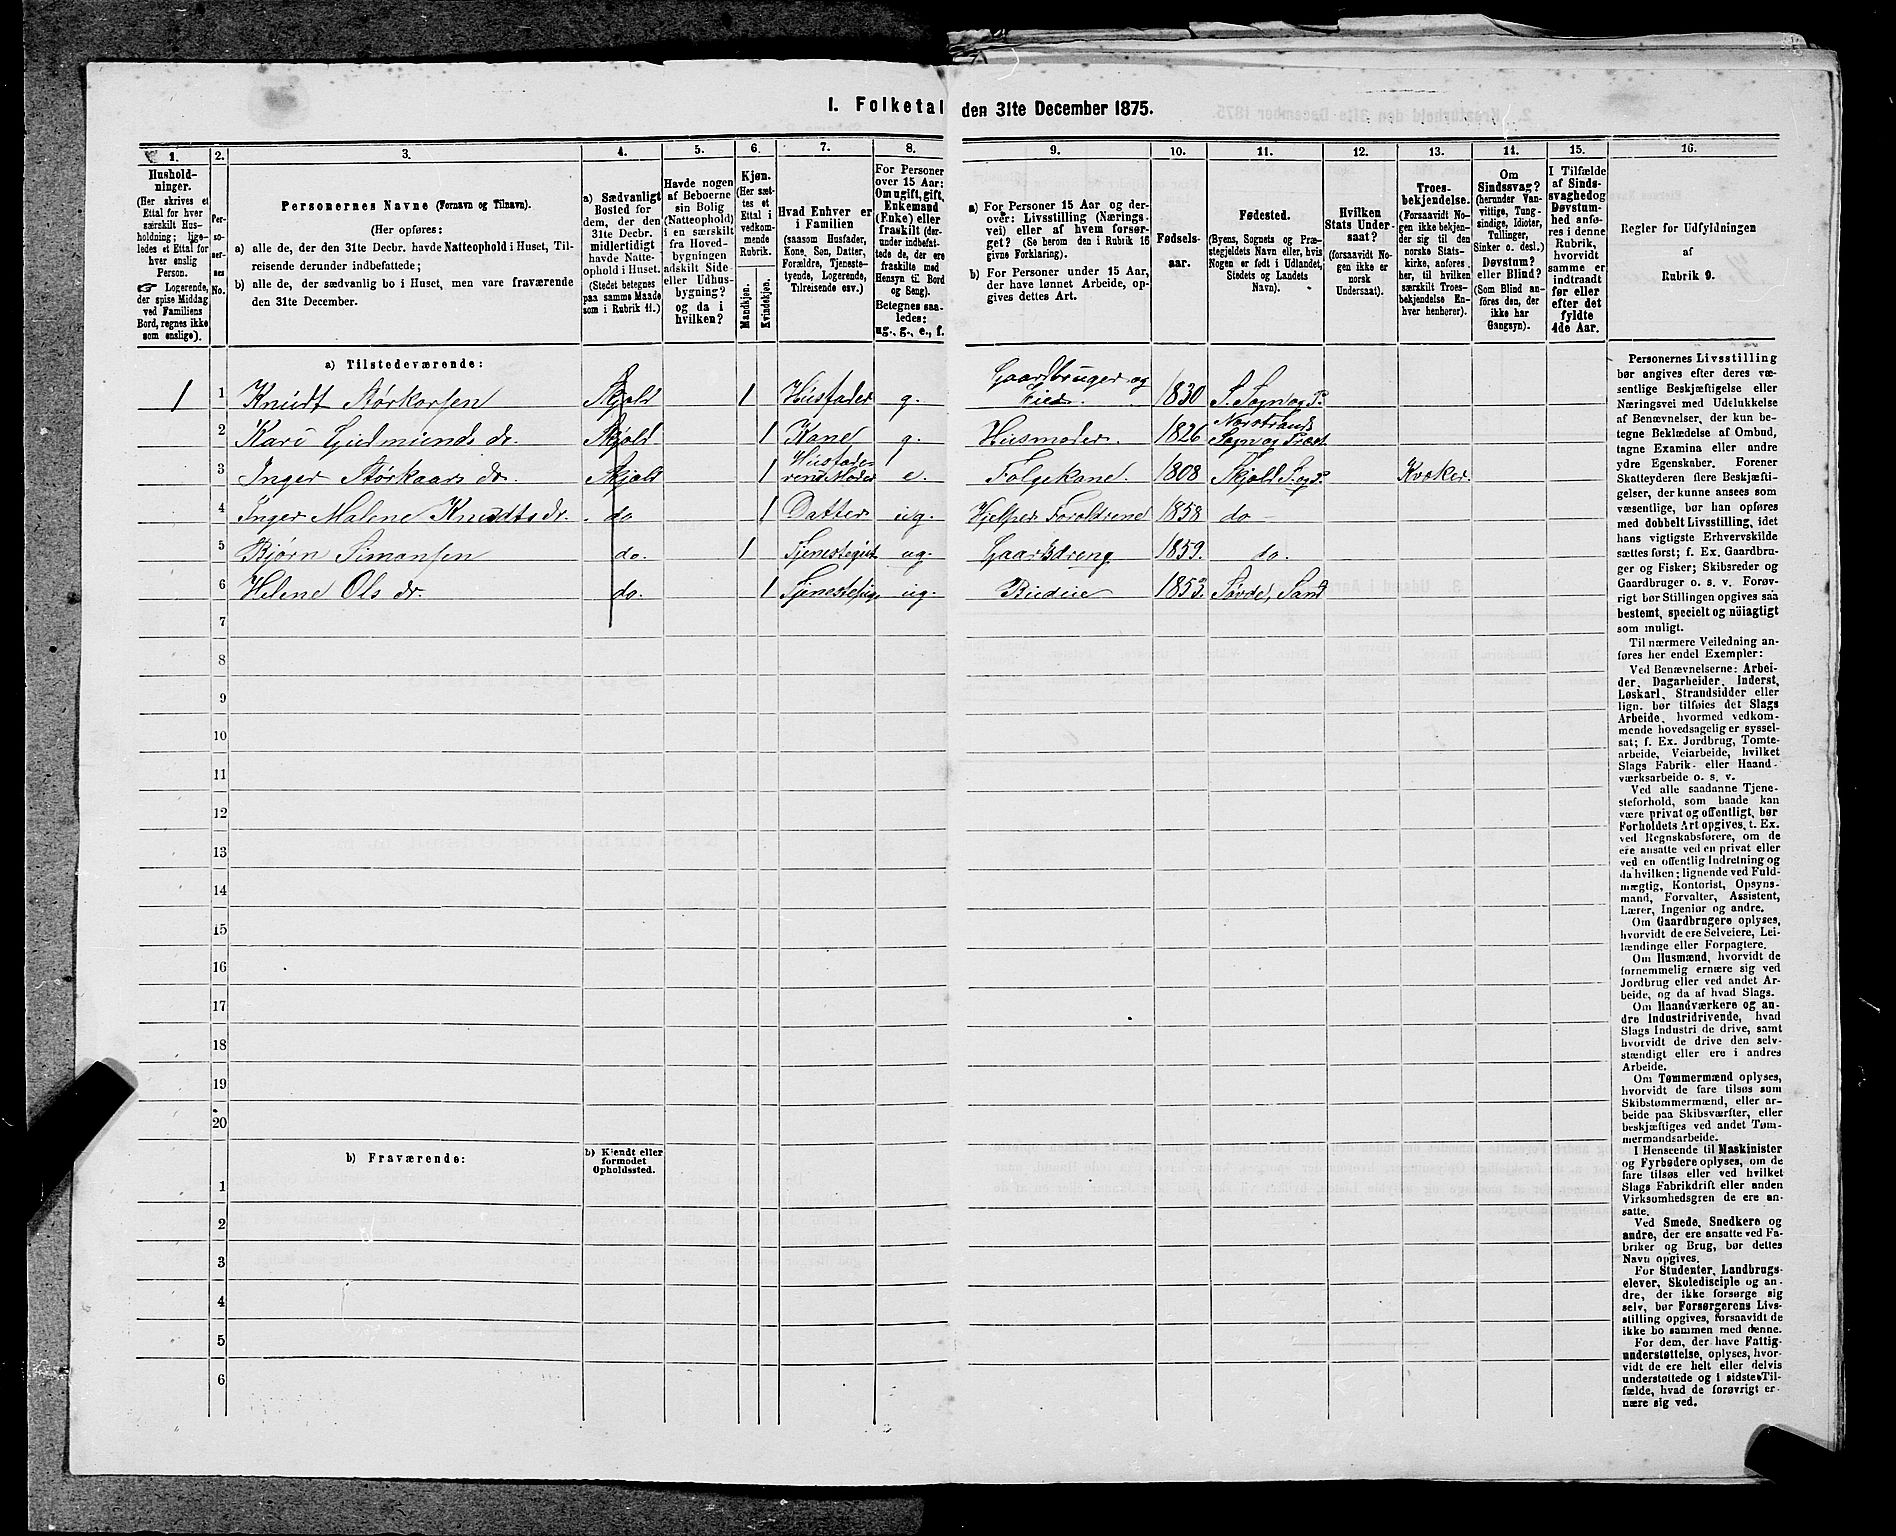 I. Folketal den 31te December 1875.
1. 2. 3. 4. 5. 6. 7. 8. 9. 10. 11. 12. 13. 14. 15. 16.
Hushold-
ninger.
(Her skrives et
Ettal for hver
særskilt Hus-
holdning; lige-
ledes et Ettal for
hver enslig
Person.
☞ Logerende,
der spise Middag
ved Familiens
Bord, regnes ikke
som enslige).
Per-
so-
ner-
nes
No.
Personernes Navne (Fornavn og Tilnavn).
(Her opføres:
a) alle de, der den 31te Decbr. havde Natteophold i Huset, Til-
reisende derunder indbefattede;
b) alle de, der sædvanlig bo i Huset, men vare fraværende
den 31te December.
a) Sædvanligt
Bosted for
dem, der den
31te Decbr.
midlertidigt
havde Natte-
ophold i Huset.
(Stedet betegnes
paa samme Maade
som i Rubrik 11.)
Havde nogen
af Beboerne
sin Bolig
(Natteophold)
i en særskilt
fra Hoved-
bygningen
adskilt Side-
eller Udhus-
bygning?
og da i
hvilken?
Kjøn.
(Her sæt-
tes et
Ettal i
vedkom-
mende
Rubrik.
Mandkjøn.
Kvindekjøn.
Hvad Enhver er
i Familien
(saasom Husfader,
Kone, Søn, Datter,
Forældre, Tjeneste-
tyende, Logerende,
Tilreisende osv.)
For Personer
over 15 Aar:
Om ugift, gift,
Enkemand
(Enke) eller
fraskilt (der-
under indbefat-
tede de, der ere
fraskilte med
Hensyn til Bord
og Seng).
Betegnes saa-
ledes:
ug., g., e., f.
a) For Personer 15 Aar og der-
over: Livsstilling (Nærings-
vei) eller af hvem forsør-
get? (Se herom den i Rubrik 16
givne Forklaring).
b) For Personer under 15 Aar,
der have lønnet Arbeide, op-
gives dettes Art.
Fødsels-
aar.
Fødested.
(Byens, Sognets og Præ-
stegjeldets Navn eller, hvis
Nogen er født i Udlandet,
Stedets og Landets
Navn).
Hvilken
Stats Under-
saat?
(forsaavidt No-
gen ikke er
norsk
Undersaat).
Troes-
bekjendelse.
(Forsaavidt No-
gen ikke bekjen-
der sig til den
norske Stats-
kirke, anføres
her, til hvilken
særskilt Troes-
bekjendelse En-
hver henhører).
Om
Sindssvag?
(herunder Van-
vittige, Tung-
sindige, Idioter,
Tullinger,
Sinker o. desl.)
Døvstum?
eller Blind?
(Som Blind an-
føres den, der
ikke har
Gangsyn).
I Tilfælde
af Sinds-
svaghed og
Døvstum-
hed anfø-
res i denne
Rubrik,
hvorvidt
samme er
indtraadt
før eller
efter det
fyldte
4de Aar.
Regler for Udfyldningen
af
Rubrik 9.
a) Tilstedeværende:
1 1 Knudt Størkorsen Skjold 1 Husfader g. Gaardbruger og 1830 S. Sogn og P.
2 Kari Gudmunds dr. Skjold 1 Kone g. Husmoder. 1826 Nerstrands Sogn og Præst
3 Inger Størkaars dr. Skjold 1 Husfaderens Moder e. Følgekone. 1808 Skjold S. og P. Kvæker.
4 Inger Malene Knudts dr. do 1 Datter ug. Hjelper Foreldrene 1858 do
5 Bjørn Simonsen do. 1 ug. Gaardsdreng 1859. do.
6 Helene Ols dr. do. 1 ug. Budeie 1853. Søvde, Sand
7
8
9
10
11
12
13
14
15
16
17
18
19
20
b) Fraværende:
b) Kjendt eller
formodet
Opholdssted.
1
2
3
4
5
6
Personernes Livsstilling
bør angives efter deres væ-
sentlige Beskjæftigelse eller
Næringsvei med Udelukkelse
af Benævnelser, der kun be-
tegne Beklædelse af Ombud,
tagne Examina eller andre
ydre Egenskaber. Forener
Skatteyderen flere Beskjæfti-
gelser, der kunne ansees som
væsentlige, bør han opføres
med dobbelt Livsstilling, idet
hans vigtigste Erhvervskilde
sættes først; f. Ex. Gaardbru-
ger og Fisker; Skibsreder og
Gaardbruger o. s. v. Forøv-
rigt bør Stillingen opgives saa
bestemt, specielt og nöiagtigt
som muligt.
Til nærmere Veiledning an-
føres her endel Exempler:
Ved Benævnelserne: Arbei-
der, Dagarbeider, Inderst,
Løskarl, Strandsidder eller
lign. bør tilføies det Slags
Arbeide, hvormed vedkom-
mende hovedsagelig er syssel-
sat; f. Ex. Jordbrug, Tomte-
arbeide, Veiarbeide, hvilket
Slags Fabrik- eller Haand-
værksarbeide o. s. v.
Ved alle saadanne Tjene-
steforhold, som baade kan
være privat og offentligt, bør
Forholdets Art opgives, t. Ex.
ved Regnskabsførere, om de
ere ansatte ved en privat eller
ved en offentlig Indretning og
da hvilken; lignende ved Fuld-
mægtig, Kontorist, Opsyns-
mand, Forvalter, Assistent,
Lærer, Ingeniør og andre.
Om Gaardbrugere oplyses,
hvorvidt de ere Selveiere, Lei-
lændinge eller Forpagtere.
Om Husmænd, hvorvidt de
fornemmelig ernære sig ved
Jordbrug eller ved andet Ar-
beide, og da af hvad Slags.
Om Haandværkere og an-
dre Industridrivende, hvad
Slags Industri de drive, samt
hvorvidt de drive den selv-
stændigt eller ere i andres
Arbeide.
Om Tømmermænd oplyses,
hvorvidt de fare tilsøs som
Skibstømmermænd, eller ar-
beide paa Skibsværfter, eller
beskjæftiges ved andet Tøm-
mermandsarbeide.
I Henseende til Maskinister
og Fyrbødere oplyses, om de
fare tilsøs eller ved hvilket
Slags Fabrikdrift eller anden
Virksomhedsgren de ere an-
satte.
Ved Smede, Snedkere og
andre, der ere ansatte ved Fa-
briker og Brug, bør dettes
Navn opgives.
For Studenter, Landbrugs-
elever, Skoledisciple og an-
dre, der ikke forsørge sig
selv, bør Forsørgerens Livs-
stilling opgives, forsaavidt de
ikke bo sammen med denne.
For dem, der have Fattig-
understøttelse, oplyses, hvor-
vidt de ere helt eller delvis
understøttede og i sidste Til-
fælde, hvad de forøvrigt er-
nære sig ved.